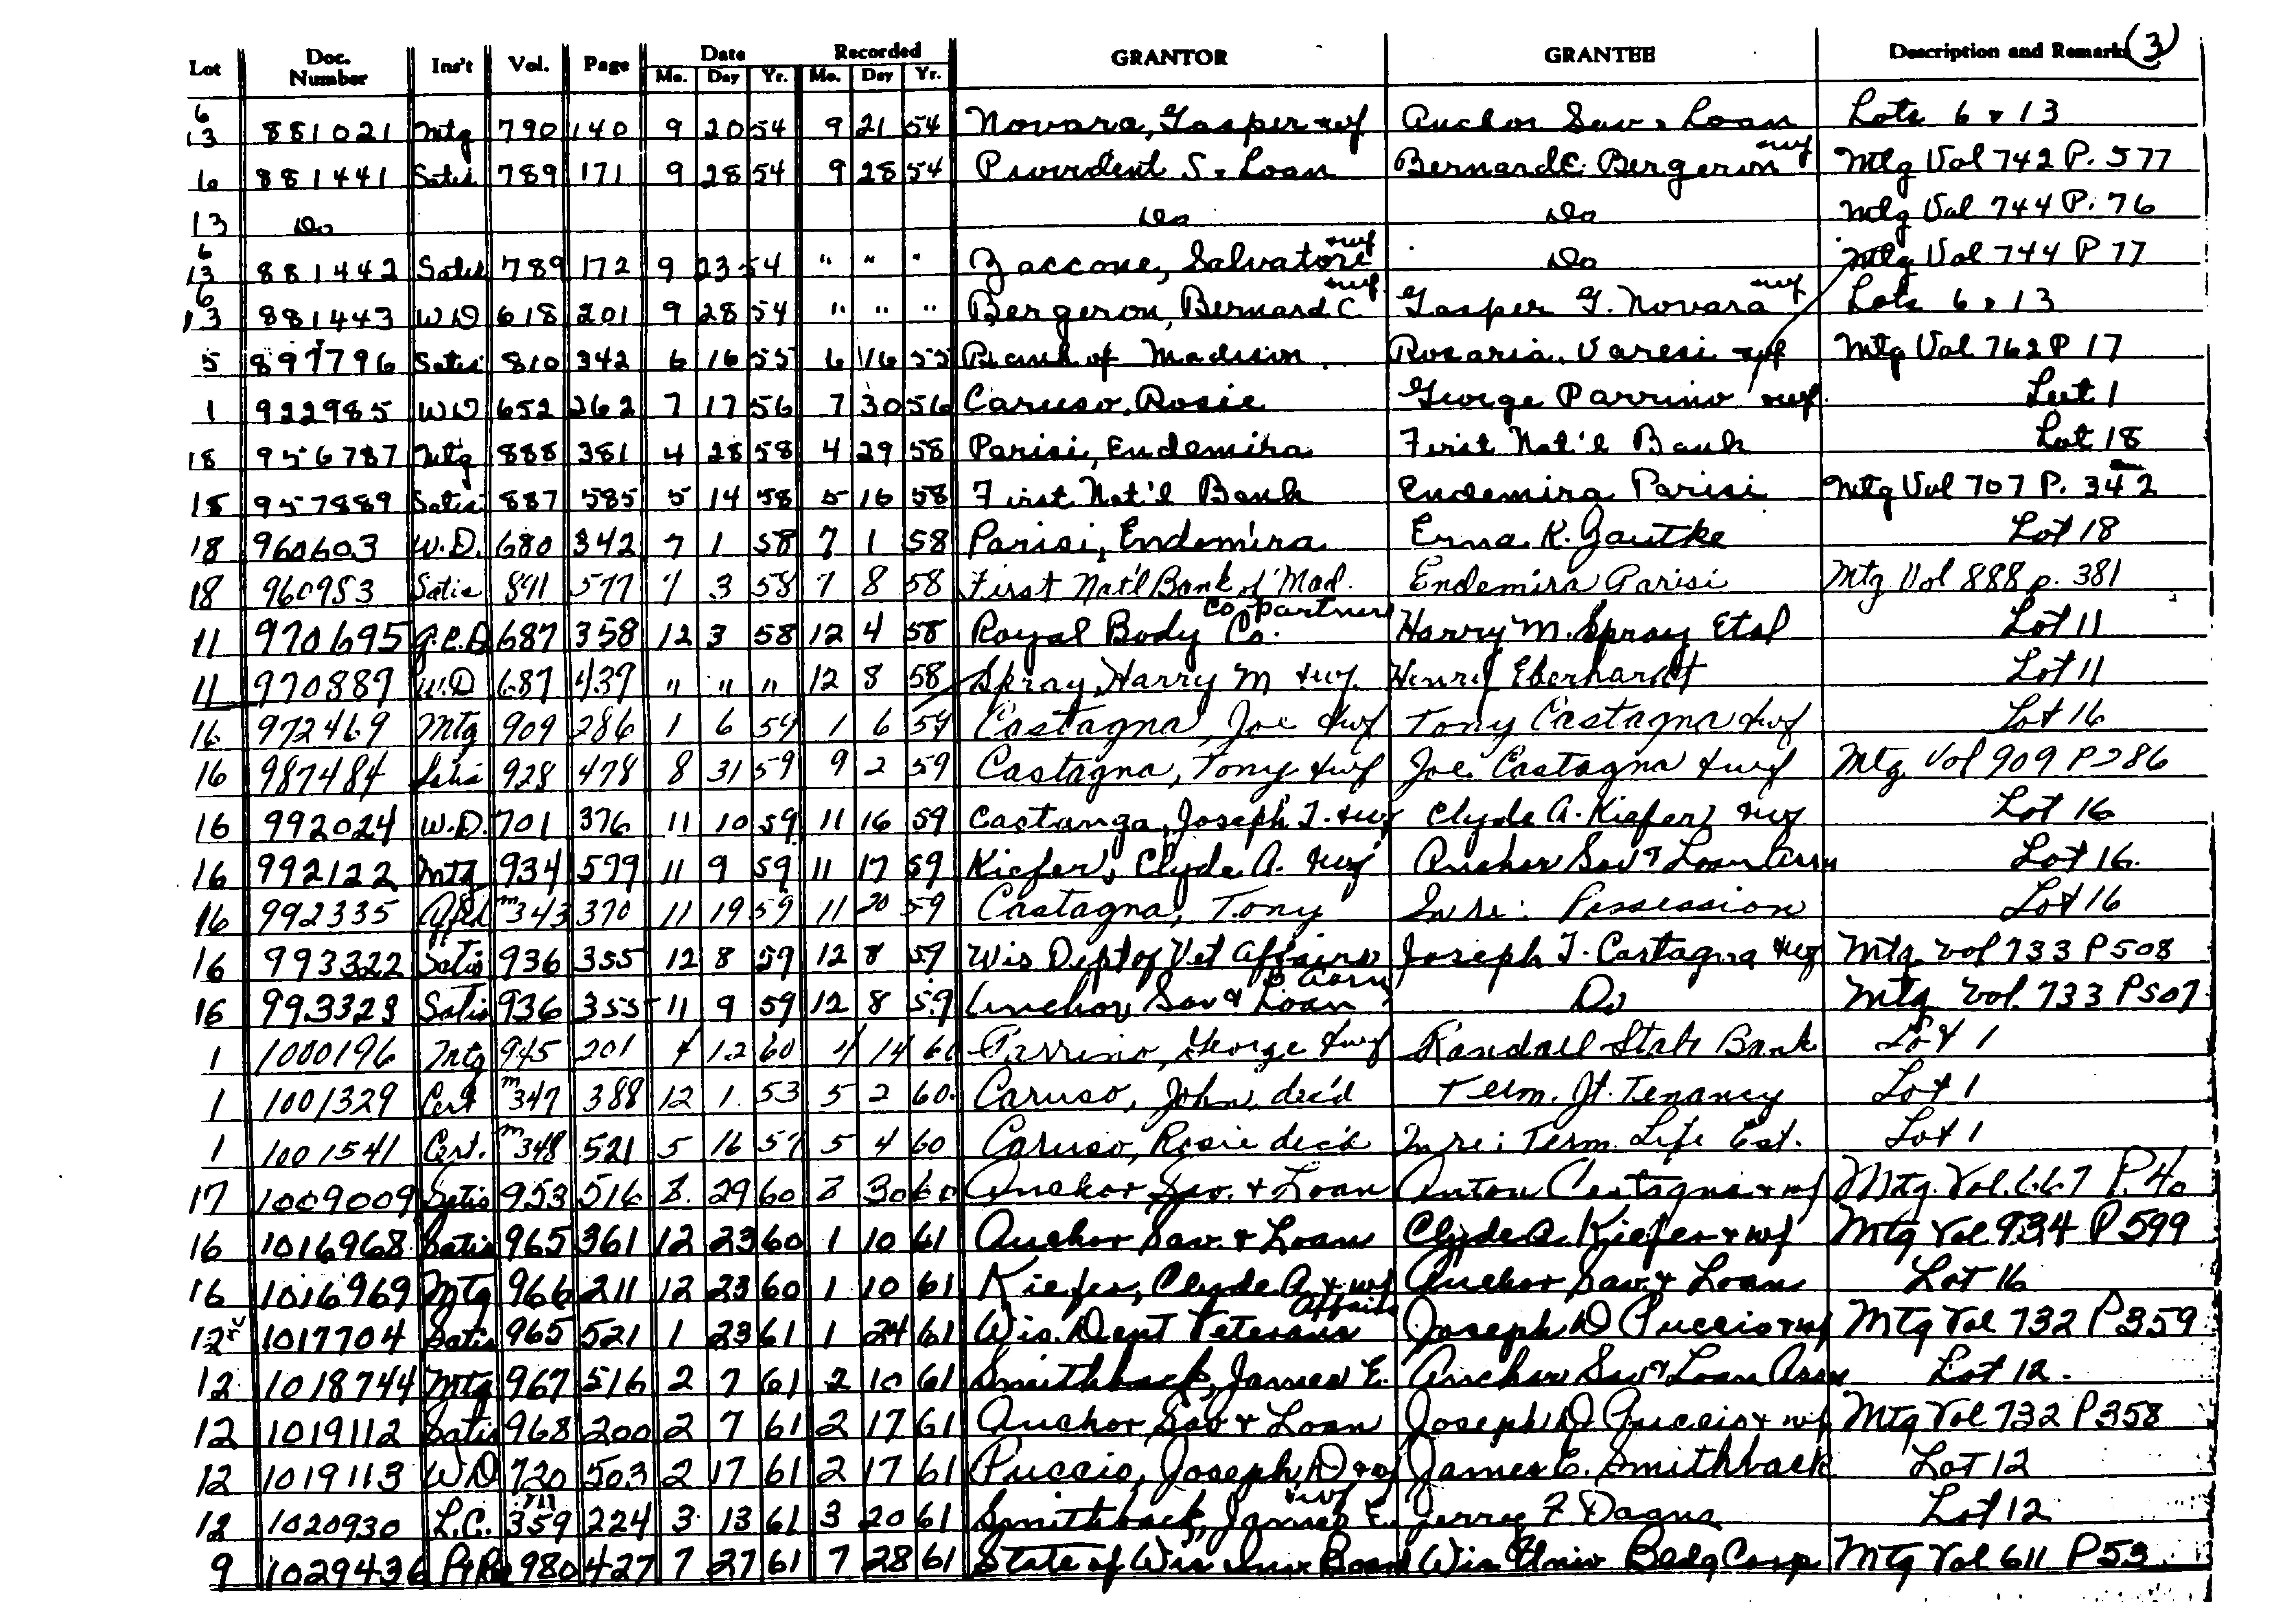 Lot Doc. Number Ins't Vol. Page Date Mo. Day Yr. Recorded Mo. Day Yr. GRANTOR GRANTEE Description and Remarks (3)
6 13 881021 Mtg 790 140 9 20 54 9 21 54 Novara, Gasper & wf Anchor Sav & Loan Lots 6 & 13
6 881441 Satis 789 171 9 28 54 9 28 54 Provident S & Loan Bernard C. Bergeron & wf Mtg Vol 742 P. 577
13 Do Do Do Mtg Vol 744 P. 76
6 13 881442 Satis 789 172 9 23 54 " " " Zaccone, Salvatore & wf Do Mtg Vol 744 P 77
6 13 881443 WD 618 201 9 28 54 " " " Bergeron, Bernard C & wf Gasper G. Novara & wf Lots 6 & 13
5 897796 Satis 810 342 6 16 55 6 16 55 Bank of Madison Rosaria Varesi & wf Mtg Vol 762 P 17
1 922985 WD 652 262 7 17 56 7 30 56 Caruso, Rosie George Parrino & wf Lot 1
18 956787 Mtg 888 381 4 28 58 4 29 58 Parisi, Endemira First Nat'l Bank Lot 18
18 957889 Satis 887 585 5 14 58 5 16 58 First Nat'l Bank Endemira Parisi Mtg Vol 707 P. 342
18 960603 W.D. 680 342 7 1 58 7 1 58 Parisi, Endemira Erna K. Gautke Lot 18
18 960953 Satis 891 577 7 3 58 7 8 58 First Nat'l Bank of Mad. Endemira Parisi Mtg Vol 888 p. 381
11 970695 Q.C.D 687 358 12 3 58 12 4 58 Royal Body Co. co-partners Harry M. Spray Etal Lot 11
11 970889 W.D 687 439 " " " 12 8 58 Spray, Harry M & wf. Henry Eberhardt Lot 11
16 972469 Mtg 909 286 1 6 59 1 6 59 Castagna, Joe & wf Tony Castagna & wf Lot 16
16 987484 Satis 928 478 8 31 59 9 2 59 Castagna, Tony & wf Joe Castagna & wf Mtg Vol 909 P 286
16 992024 W.D. 701 376 11 10 59 11 16 59 Castanga, Joseph T. & wf Clyde A. Kiefer & wf Lot 16
16 992122 Mtg 934 599 11 9 59 11 17 59 Kiefer, Clyde A. & wf Anchor Sav & Loan Assn Lot 16.
16 992335 Affd m343 370 11 19 59 11 20 59 Castagna, Tony In re: Possession Lot 16
16 993322 Satis 936 355 12 8 59 12 8 59 Wis Dept of Vet Affairs Joseph T. Castagna & wf Mtg. Vol 733 P 508
16 993323 Satis 936 355 11 9 59 12 8 59 Anchor Sav & Loan Assn Do Mtg Vol. 733 P 507
1 1000196 Mtg 945 201 4 12 60 4 14 60 Parrino, George & wf Randall State Bank Lot 1
1 1001329 Cert m347 388 12 1 53 5 2 60 Caruso, John, dec'd Term. Jt. Tenancy Lot 1
1 1001541 Cert. m348 521 5 16 57 5 4 60 Caruso, Rosie dec'd In re: Term. Life Est. Lot 1
17 1009009 Satis 953 516 8 29 60 8 30 60 Anchor Sav. & Loan Anton Castagna & wf Mtg. Vol. 667 P. 40
16 1016968 Satis 965 361 12 23 60 1 10 61 Anchor Sav. & Loan Clyde A. Kiefer & wf Mtg Vol 934 P 599
16 1016969 Mtg 966 211 12 23 60 1 10 61 Kiefer, Clyde A. & wf Anchor Sav & Loan Lot 16
12 1017704 Satis 965 521 1 23 61 1 24 61 Wis. Dept Veterans Affairs Joseph D Puccio & wf Mtg Vol 732 P 359
12 1018744 Mtg 967 516 2 7 61 2 10 61 Smithback, James E. Anchor Sav & Loan Assn Lot 12.
12 1019112 Satis 968 200 2 7 61 2 17 61 Anchor Sav & Loan Joseph D Puccio & wf Mtg Vol 732 P 358
12 1019113 WD 720 503 2 17 61 2 17 61 Puccio, Joseph D & wf James E. Smithback Lot 12
12 1020930 L.C. m359 224 3 13 61 3 20 61 Smithback, James E. & wf Jerry F. Dagna Lot 12
9 1029436 Pt Re 980 427 7 27 61 7 28 61 State of Wis Inv. Board Wis Univ Bldg Corp Mtg Vol 611 P 53